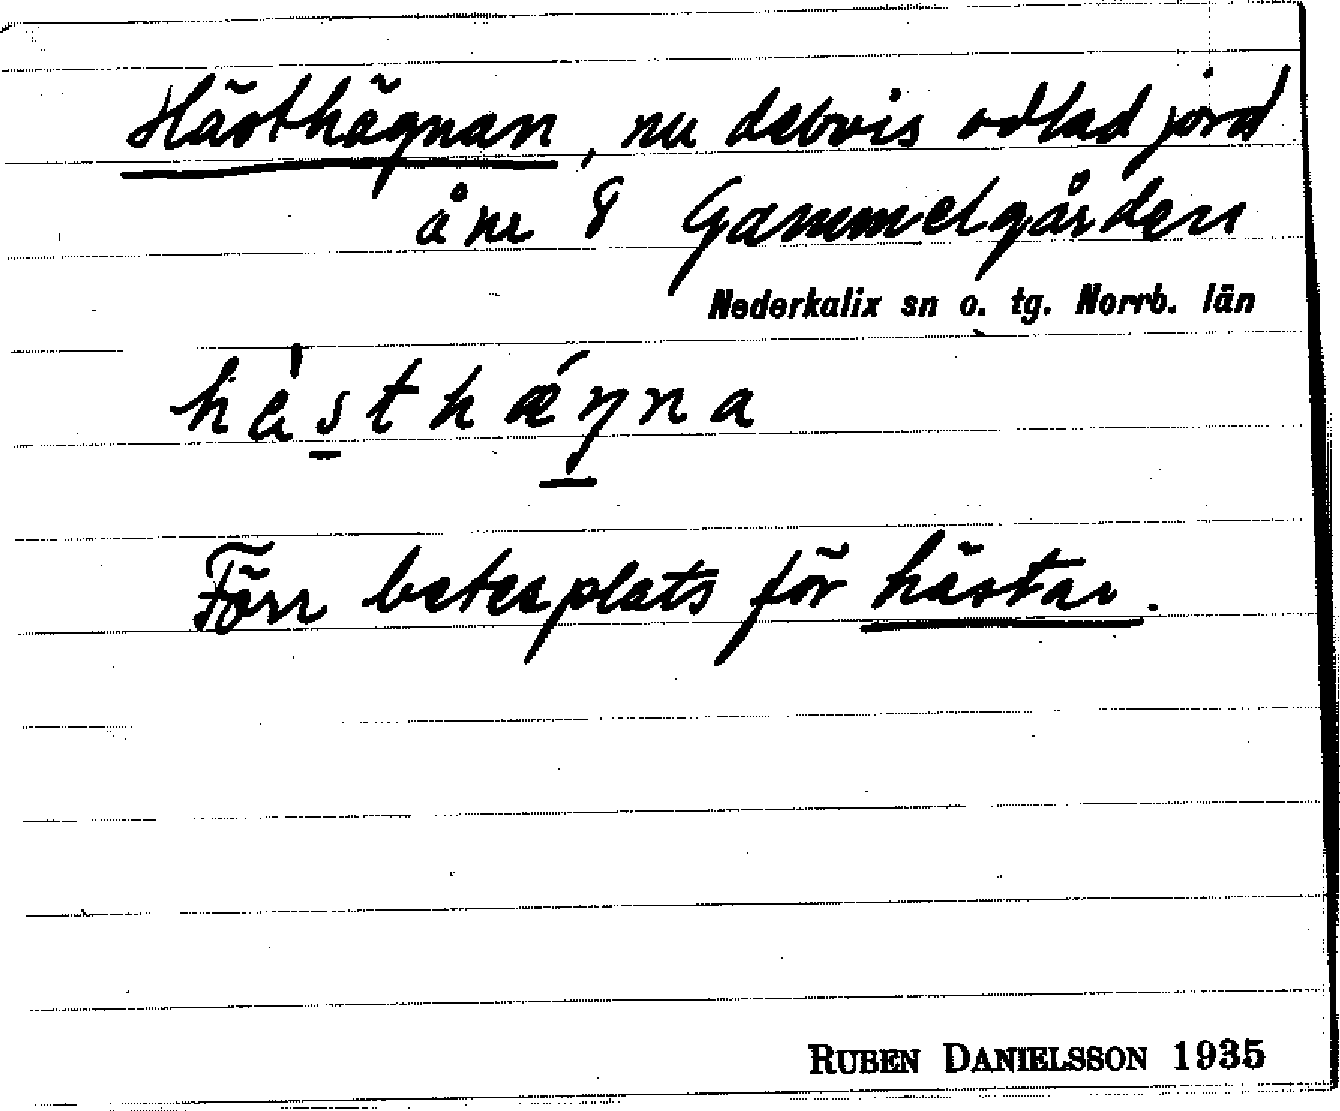 Hästhägnan, nu delvis odlad jord
å nr 8 Gammelgården
Nederkalix sn o. tg. Norrb. län
Förr betesplats för hästar.
RUBEN DANIELSSON 1935